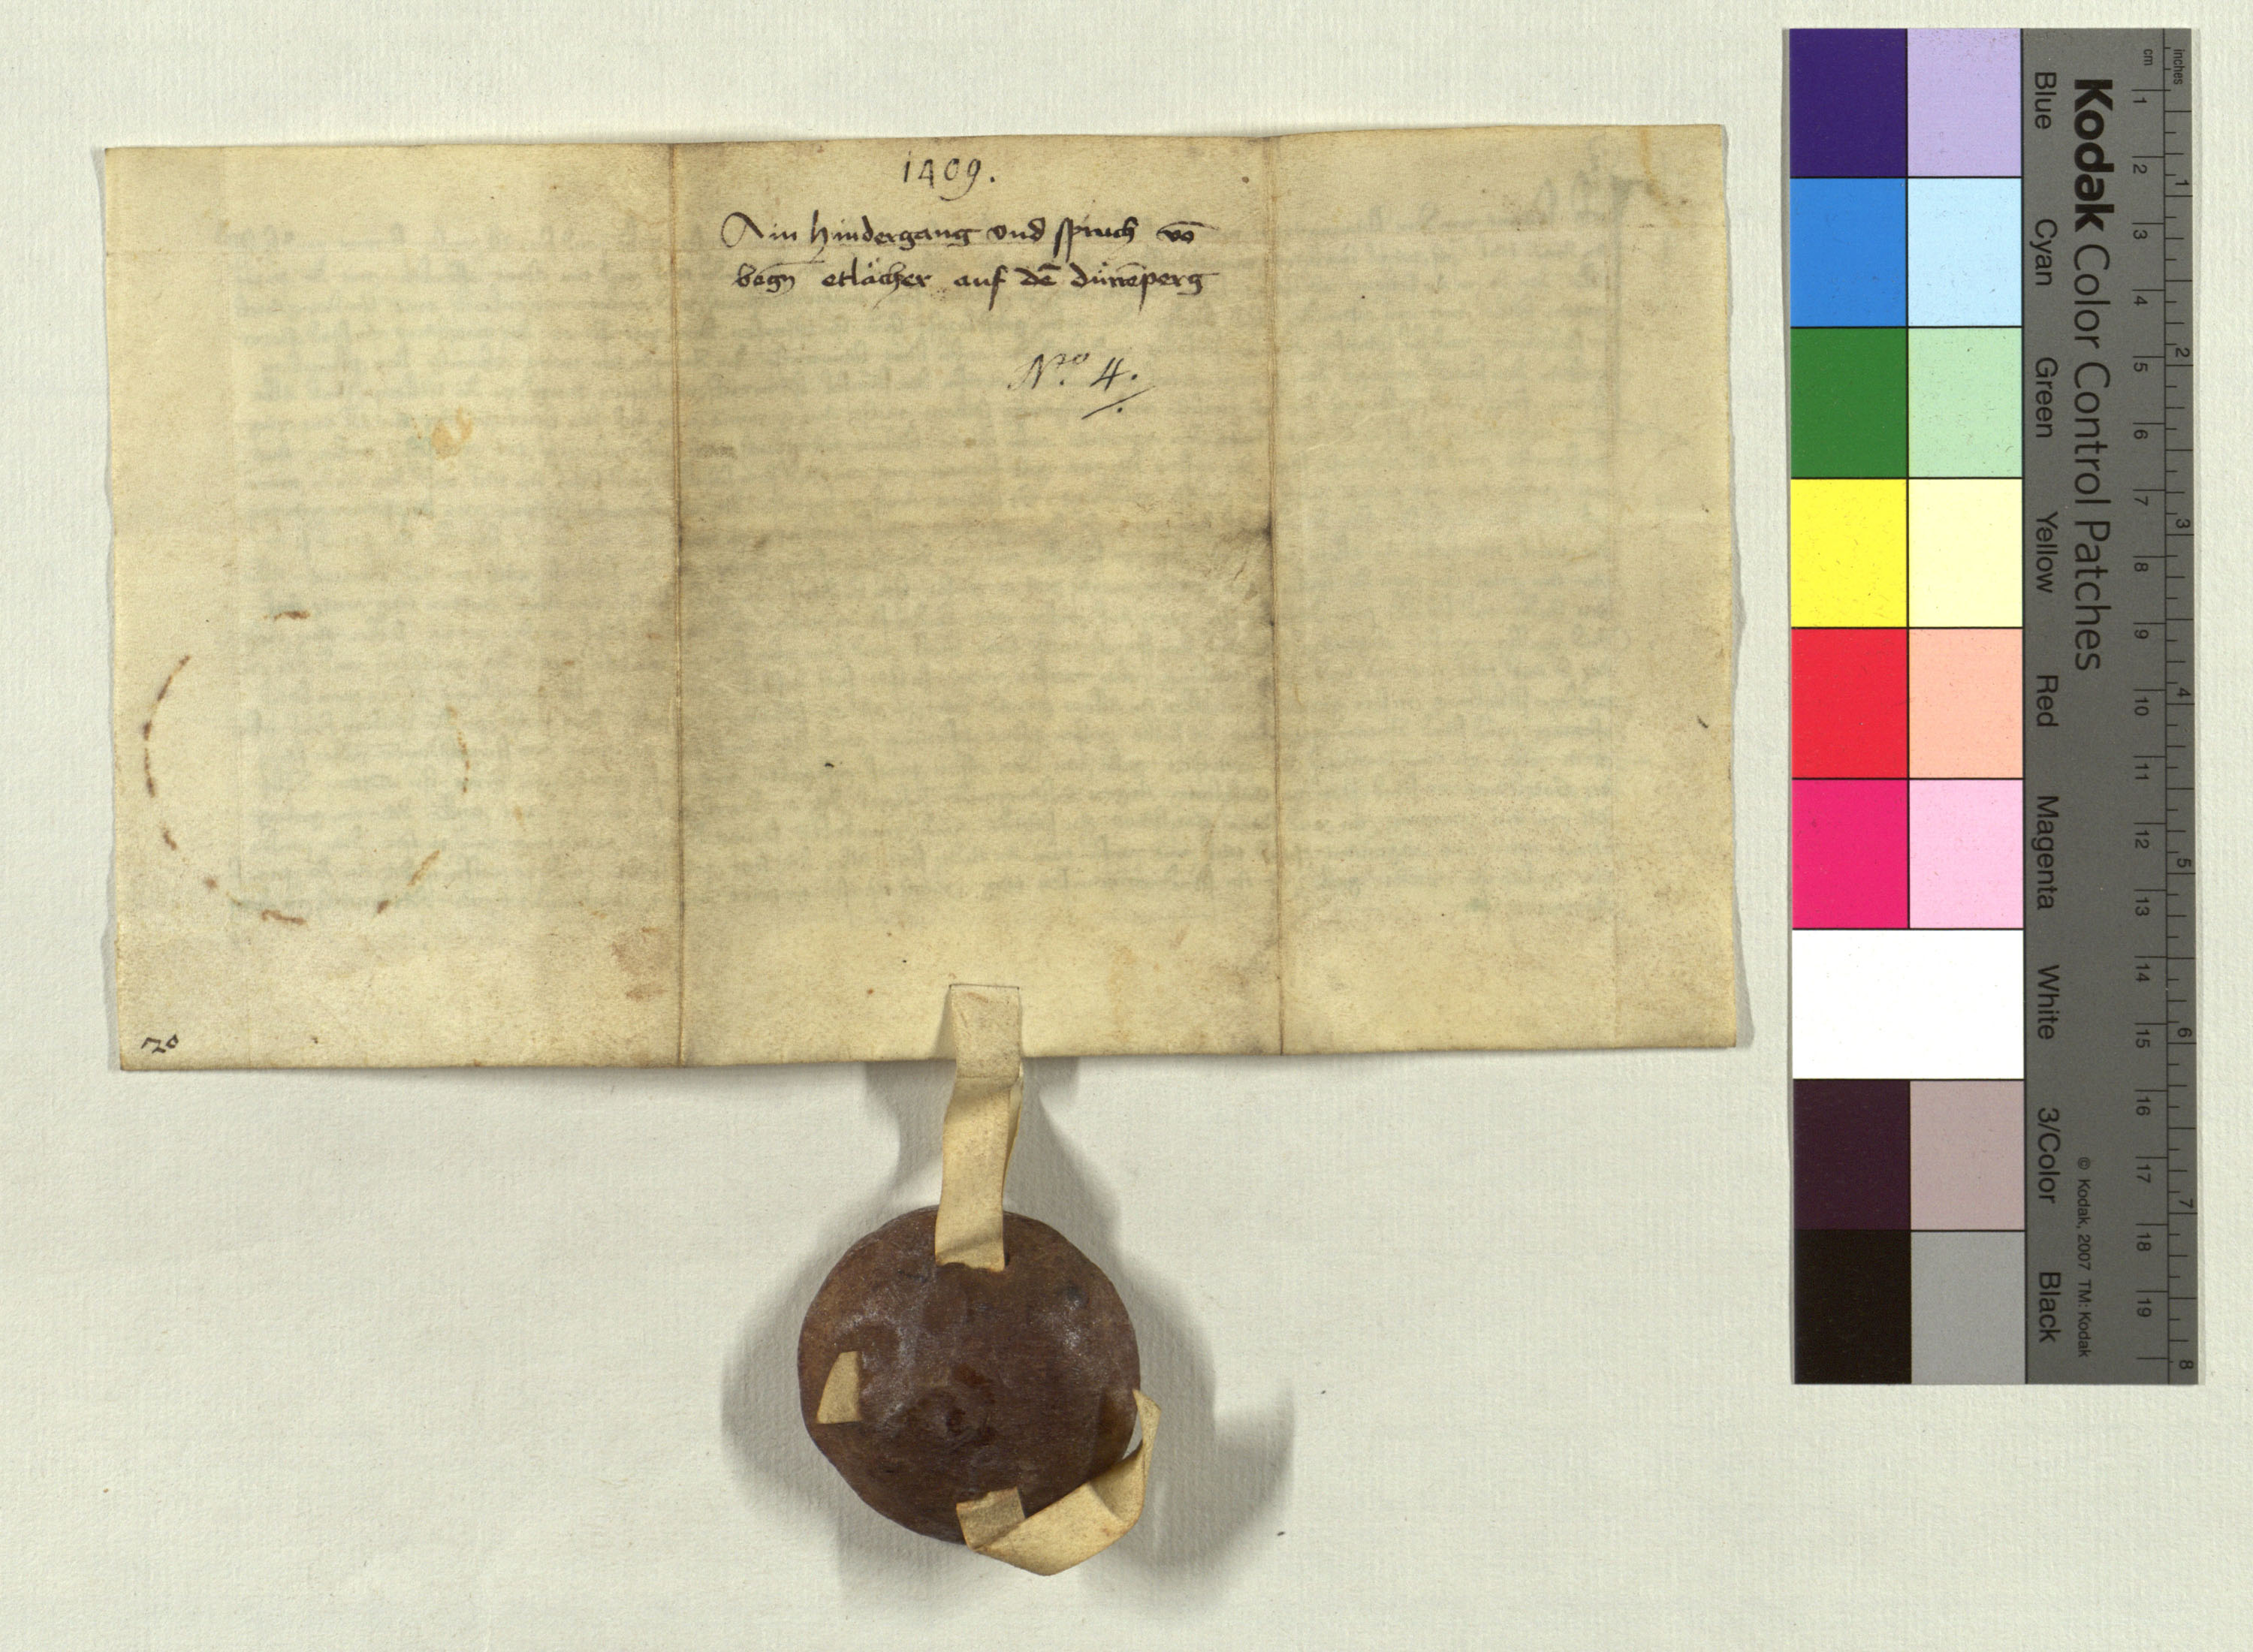 1409.
Ain hindergang vnd spruch vō
etlicher auf dē dürrēperg
Nro 4.
70
Kodak Color Control Patches
Blue Cyan Green Yellow Red Magenta White 3/Color Black
© Kodak, 2007 TM: Kodak
cm 1 2 3 4 5 6 7 8 9 10 11 12 13 14 15 16 17 18 19
inches 1 2 3 4 5 6 7 8